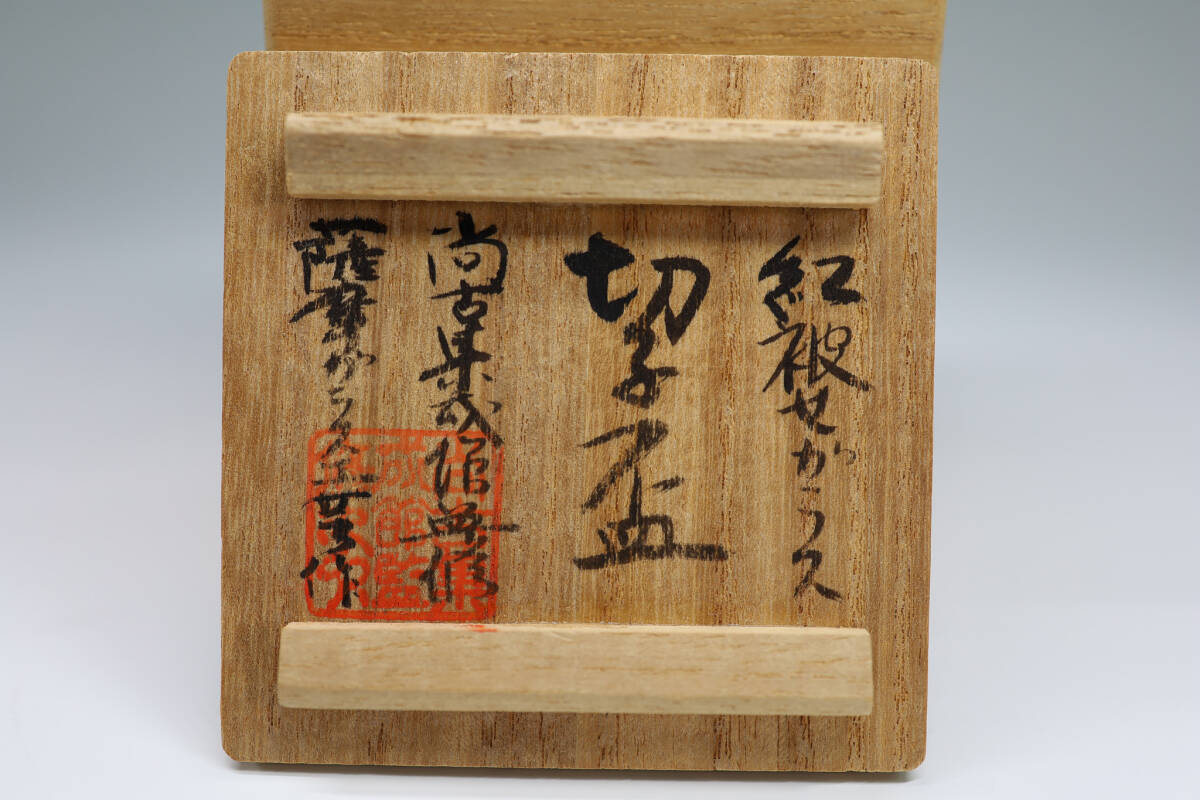 紅被せガラス
切子盃
尚古集成館監修
薩摩ガラス工芸作